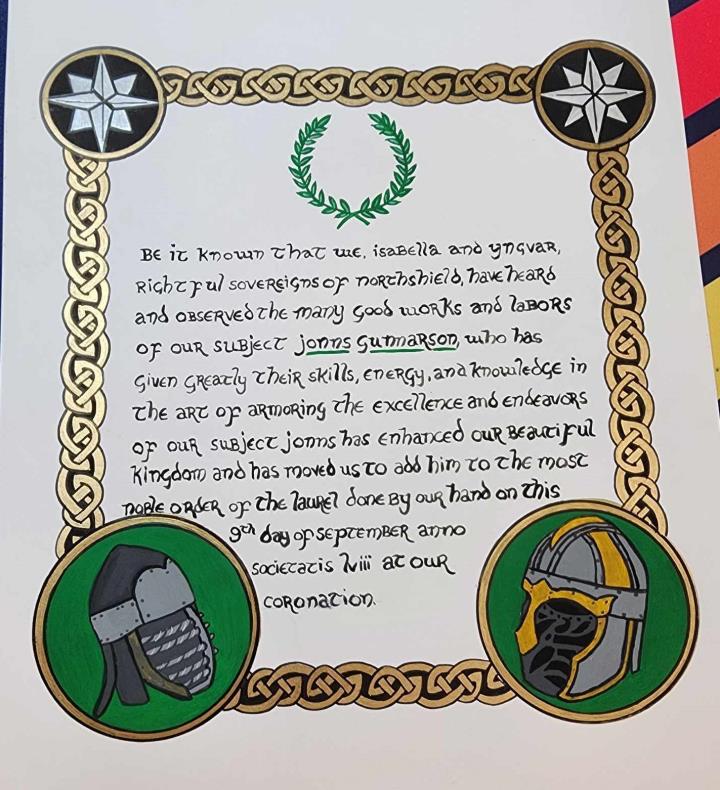 Be it known that we, isabella and yngvar,
Rightful sovereigns of northshield, have heard
and observed the many good works and labors
of our subject jonns Gunnarson, who has
Given greatly their skills, energy, and knowledge in
the art of armoring the excellence and endeavors
of our subject jonns has enhanced our beautiful
kingdom and has moved us to add him to the most
noble order of the laurel done by our hand on this
9th day of september anno
societatis lviii at our
coronation.